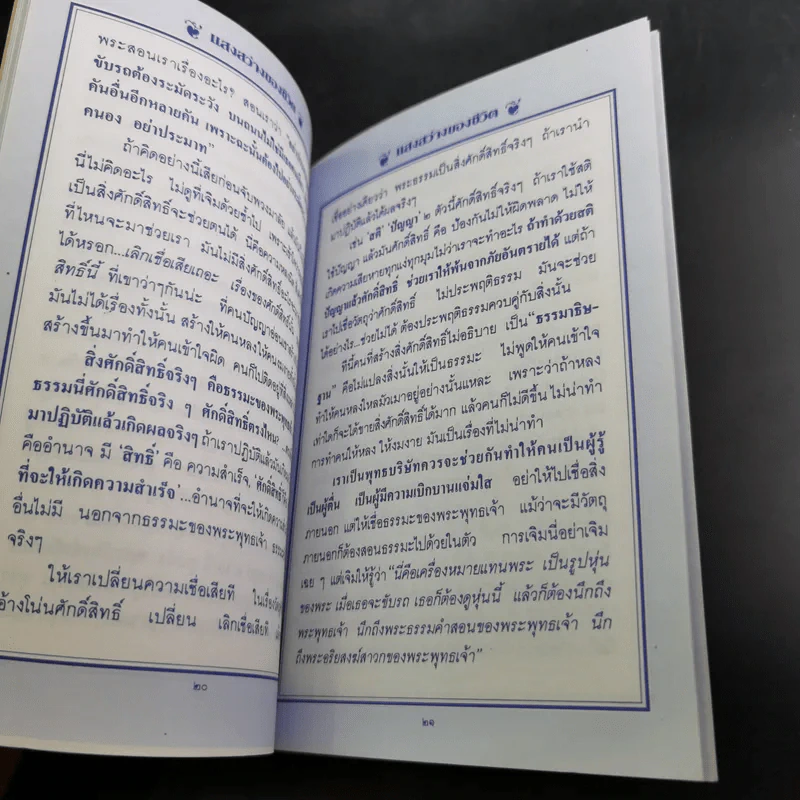 แสงสว่างของชีวิต
พระสอนเราเรื่องอะไร? สอนเราว่า
ขับรถต้องระมัดระวัง บนถนนไม่ใช่มีรถ
คันอื่นอีกหลายคัน เพราะฉะนั้นต้องไป
คนอง อย่าประมาท"
ถ้าคิดอย่างนี้เสียก่อนจับพวงมาลัย
นี่ไม่คิดอะไร ไม่ดูที่เจิมด้วยซ้ำไป
เป็นสิ่งศักดิ์สิทธิ์จะช่วยตนได้ นี่คือความ
ที่ไหนจะมาช่วยเรา มันไม่มีสิ่งศักดิ์สิทธิ์
ได้หรอก...เลิกเชื่อเสียเถอะ เรื่องของศักดิ์
สิทธิ์นี้ ที่เขาว่าๆกันน่ะ ที่คนปัญญาอ่อน
มันไม่ได้เรื่องทั้งนั้น สร้างให้คนหลงให้คน
สร้างขึ้นมาทำให้คนเข้าใจผิด คนก็ไปติดอยู่
สิ่งศักดิ์สิทธิ์จริงๆ คือธรรมะของพระพุทธ
ธรรมนี่ศักดิ์สิทธิ์จริง ๆ ศักดิ์สิทธิ์ตรงไหน?
มาปฏิบัติแล้วเกิดผลจริงๆ ถ้าเราปฏิบัติแล้วมัน
คืออำนาจ มี 'สิทธิ์' คือ ความสำเร็จ, 'ศักดิ์สิทธิ์'
ที่จะให้เกิดความสำเร็จ'...อำนาจที่จะให้เกิดความ
อื่นไม่มี นอกจากธรรมะของพระพุทธเจ้า
จริงๆ
ให้เราเปลี่ยนความเชื่อเสียที ในเรื่อง
อ้างโน่นศักดิ์สิทธิ์ เปลี่ยน เลิกเชื่อเสียที
๒๐
แสงสว่างของชีวิต
เชื่ออย่างเดียวว่า พระธรรมเป็นสิ่งศักดิ์สิทธิ์จริงๆ ถ้าเรานำ
มาปฏิบัติแล้วได้ผลจริงๆ
เช่น 'สติ' 'ปัญญา' ๒ ตัวนี้ศักดิ์สิทธิ์จริงๆ ถ้าเราใช้สติ
ใช้ปัญญา แล้วมันศักดิ์สิทธิ์ คือ ป้องกันไม่ให้ผิดพลาด ไม่ให้
เกิดความเสียหายทุกแง่ทุกมุมไม่ว่าเราจะทำอะไร ถ้าทำด้วยสติ
ปัญญาแล้วศักดิ์สิทธิ์ ช่วยเราให้พ้นจากภัยอันตรายได้ แต่ถ้า
เราไปเชื่อวัตถุว่าศักดิ์สิทธิ์ ไม่ประพฤติธรรม มันจะช่วย
ได้อย่างไร...ช่วยไม่ได้ ต้องประพฤติธรรมควบคู่กับสิ่งนั้น
ที่นี้คนที่สร้างสิ่งศักดิ์สิทธิ์ไม่อธิบาย เป็น "ธรรมาธิษ-
ฐาน" คือไม่แปลงสิ่งนั้นให้เป็นธรรมะ ไม่พูดให้คนเข้าใจ
ทำให้คนหลงใหลมัวเมาอยู่อย่างนั้นแหละ เพราะว่าถ้าหลง
เท่าใดก็จะได้ขายสิ่งศักดิ์สิทธิ์ได้มาก แล้วคนก็ไม่ดีขึ้น ไม่น่าทำ
การทำคนให้หลง ให้งมงาย มันเป็นเรื่องที่ไม่น่าทำ
เราเป็นพุทธบริษัทควรจะช่วยกันทำให้คนเป็นผู้รู้
เป็นผู้ตื่น เป็นผู้มีความเบิกบานแจ่มใส อย่าให้ไปเชื่อสิ่ง
ภายนอก แต่ให้เชื่อธรรมะของพระพุทธเจ้า แม้ว่าจะมีวัตถุ
ภายนอกก็ต้องสอนธรรมะไปด้วยในตัว การเจิมนี่อย่าเจิม
เฉย ๆ แต่เจิมให้รู้ว่า "นี่คือเครื่องหมายแทนพระ เป็นรูปหุ่น
ของพระ เมื่อเธอจะขับรถ เธอก็ต้องดูหุ่นนี้ แล้วก็ต้องนึกถึง
พระพุทธเจ้า นึกถึงพระธรรมคำสอนของพระพุทธเจ้า นึก
ถึงพระอริยสงฆ์สาวกของพระพุทธเจ้า"
๒๑